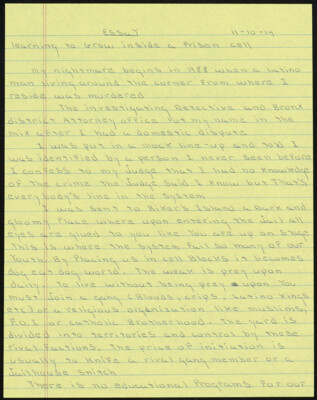 ESSAY 11-10-19
learning to Grow inside a Prison cell
my nightmare begins in 1988 when a Latino
man living around the corner from where I
reside was murdered
The investigating Detective and Bronx
district Attorney office Put my name in the
mix after I had a domestic dispute
I was put in a mock line-up and told I
was identified by a person I never seen before
I confess to my Judge that I had no knowledge
of the crime the Judge said I know but that's
everybody's line in the System
I was sent to Riker's Island a Dark and
gloomy Place. where upon entering the Jail all
eyes are glued to you like You are up on stage
This is where the System Fail so many of our
Youth By Placing us in cell Blocks it becomes
dog eat dog world. The weak is prey upon
daily. To live without being prey upon You
must Join a gang (Bloods, crips, Latino Kings
etc) or a religious organization like muslims,
F.O.I or catholic Brotherhood. The yard is
divided into territories and controls by these
rival Factions. The price of initiation is
usually to Knife a rival gang member or a
Jailhouse snitch
There is no educational Programs For our